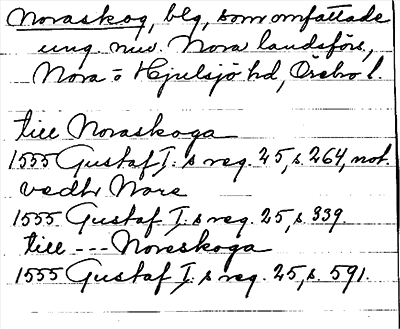 Noraskog, blg, som omfattade
ung. nuv. Nora landsförs.,
Nora o Hjulsjö hd, Örebro l.
till Noraskoga
1555 Gustaf I:s reg. 25, s. 264, not.
vedh Nore
1555 Gustaf I:s reg. 25, s. 339.
till --- Noraskoga
1555 Gustaf I:s reg. 25, s. 591.